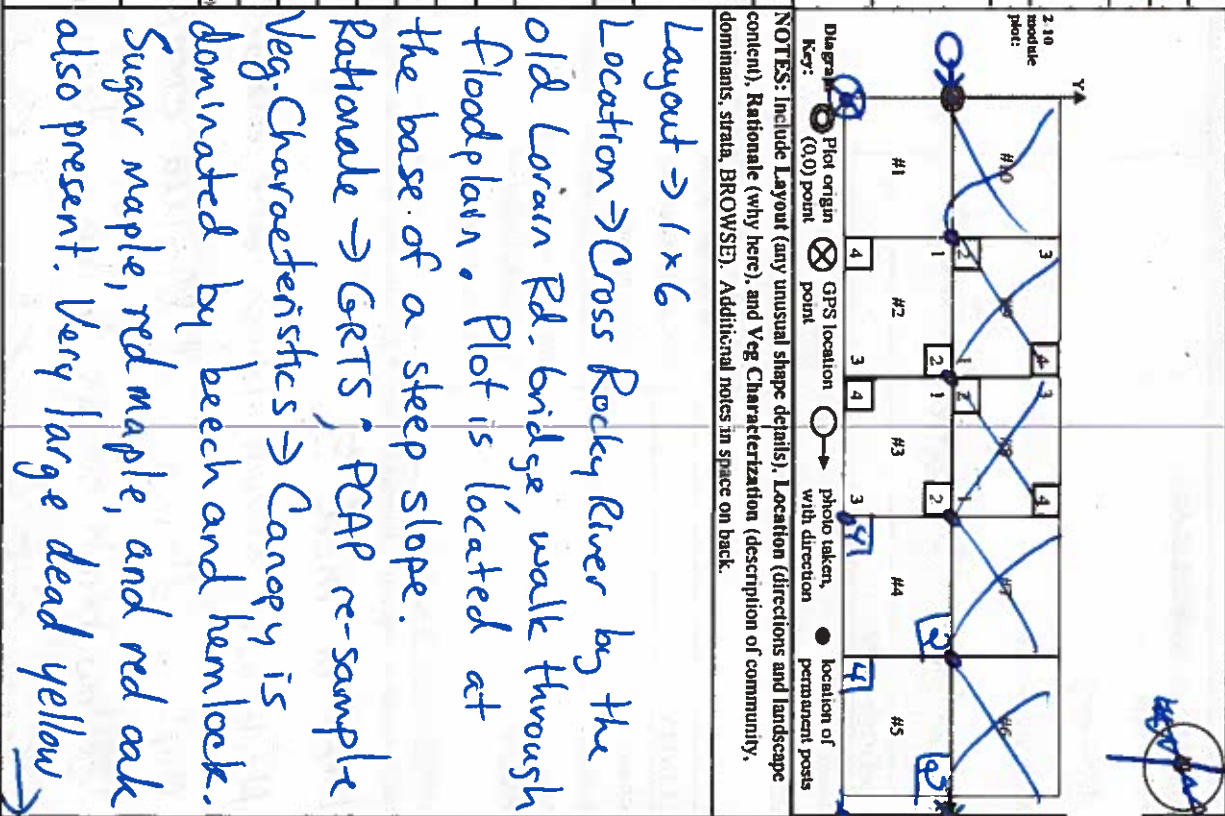 2.10
module
plot:
Y
#10
#9
#8
#7
#6
3
4
3
4
2
1
2
1
1
2
1
2
2
2
#1
#2
#3
#4
#5
4
3
4
3
4
4
Diagram Key:
Plot origin (0,0) point
GPS location point
photo taken, with direction
location of permanent posts
NOTES: Include Layout (any unusual shape details), Location (directions and landscape
content), Rationale (why here), and Veg Characterization (description of community,
dominants, strata, BROWSE). Additional notes in space on back.
Layout → 1x6
Location → Cross Rocky River by the
old Lorain Rd. bridge, walk through
floodplain. Plot is located at
the base of a steep slope.
Rationale → GRTS, PCAP re-sample
Veg. Characteristics → Canopy is
dominated by beech and hemlock.
Sugar maple, red maple, and red oak
also present. Very large dead yellow →